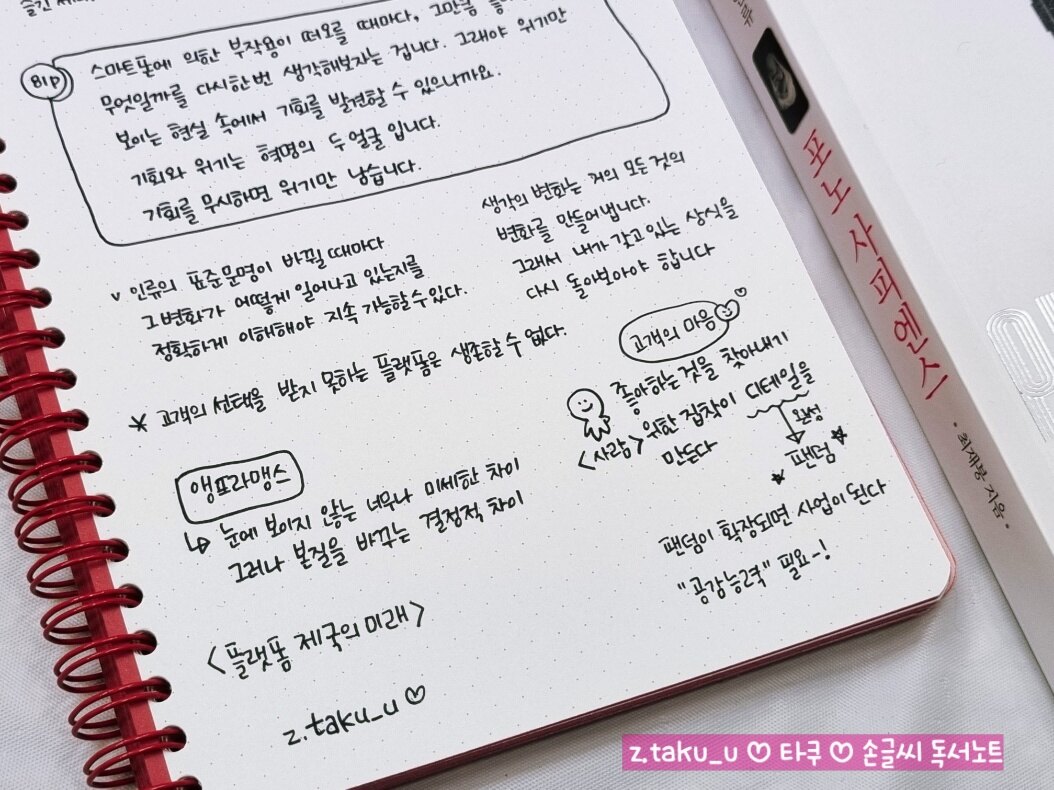 스마트폰에 의한 부작용이 떠오를 때마다, 그만큼
무엇일까를 다시한번 생각해보자는 겁니다. 그래야 위기만
BIP
보이는 현실 속에서 기회를 발견할 수 있으니까요.
기회와 위기는 혁명의 두얼굴 입니다.
기회를 무시하면 위기만 남습니다.
v 인류의 표준문명이 바뀔때마다
그변화가 어떻게 일어나고 있는지를
정확하게 이해해야 지속 가능할수있다.
생각의 변화는 거의 모든것의
변화를 만들어냅니다.
그래서 내가 갖고있는 상식을
다시 돌아보아야 합니다
* 고객의 선택을 받지 못하는 플랫폼은 생존할 수 없다.
고객의 마음 ♡
좋아하는것을 찾아내기
<사람> 위한 집착이 디테일을
만든다
완성
★ 팬덤 ★
앵프라맹스
↳ 눈에 보이지 않는 너무나 미세한 차이
그러나 본질을 바꾸는 결정적 차이
팬덤이 확장되면 사업이 된다
"공감능력" 필요~!
<플랫폼 제국의 미래>
z.taku_u ♡
포노 사피엔스
• 최재붕 지음 •
z.taku_u ♡ 타쿠 ♡ 손글씨 독서노트